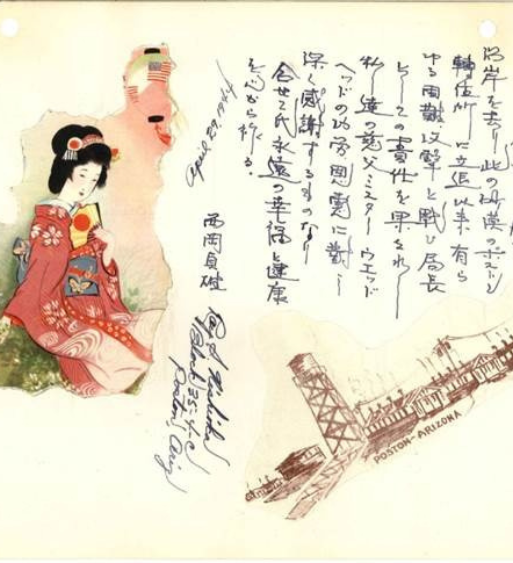 沿岸を去り此の砂漠のポストン
轉住所に立退以来有ら
ゆる困難、攻撃と戦ひ局長
としての責任を果され
私達の慈父ミスターウエッド
ヘッドの功労恩恵に對し
深く感謝するものなり
合せて氏永遠の幸福と健康
を心から祈る.
April 1944
西岡貞
Nishioka
Block 35-4-C
Poston, Ariz
POSTON-ARIZONA